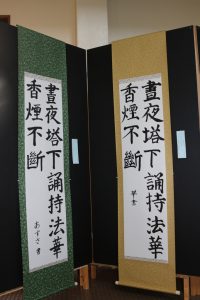 晝夜塔下誦持法華
香煙不斷
あずさ書
晝夜塔下誦持法華
香煙不斷